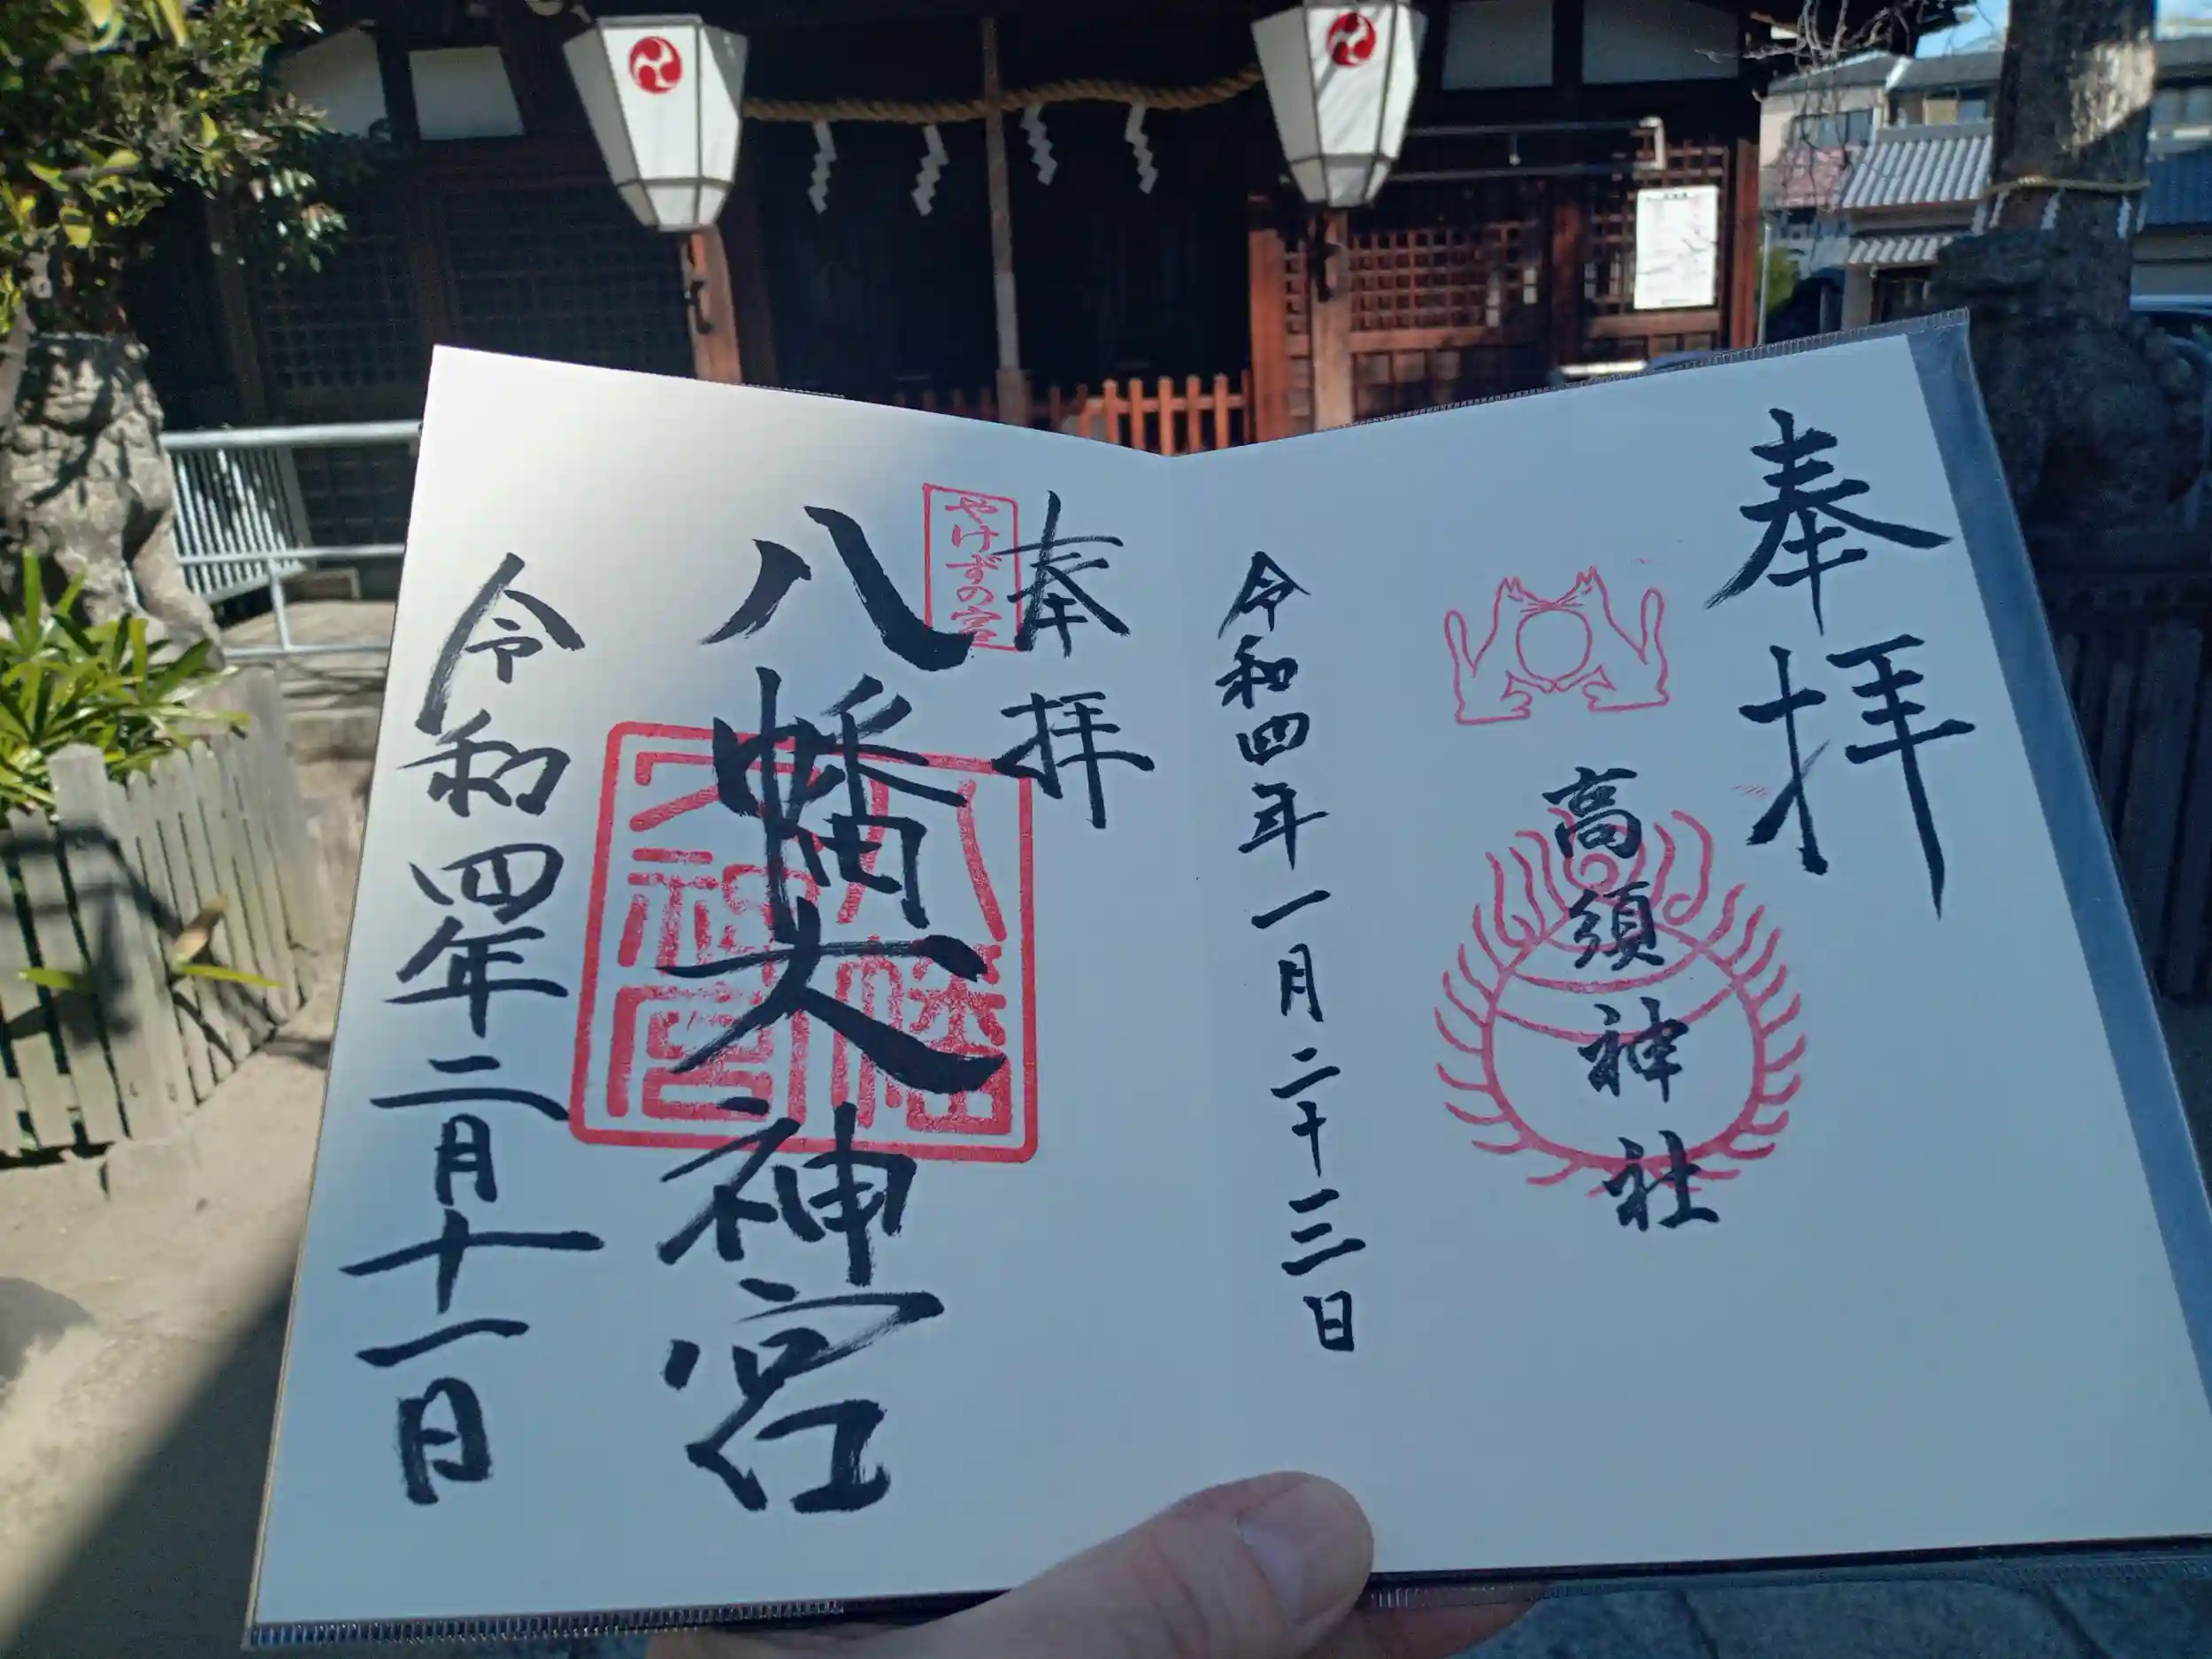 奉拝
高須神社
令和四年一月二十三日
奉拝
やけずの宮
八幡大神宮
令和四年二月十一日